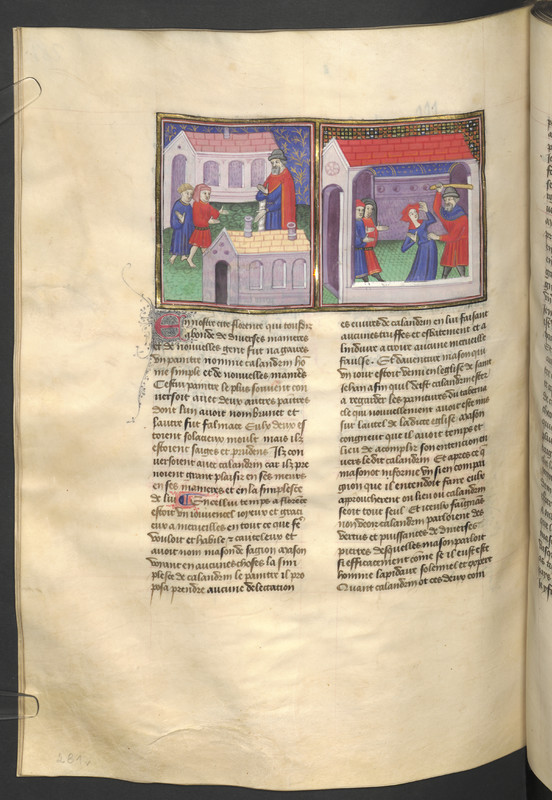 En nostre cite florence qui tousiours
habonde de diverses manieres
et de nouvelles gens fut nagaires
un paintre nomme calandrin ho
me simple et de nouvelles manieres
Cestui paintre le plus souvent con
versoit avec deux autres paintres
dont lun avoit nom brunet et
lautre fut
estoient solacieux moult mais ilz
estoient saiges et prudens Ilz con
versoient avec calandrin car ilz pre
noient grant plaisir en ses meurs
en ses manieres et en la simplesse
de lui En icellui temps a florence
estoit un jouvencel joyeux et graci
eux a merveilles en tout ce que fe
vouloit et habile et cauteleux et
avoit nom mason de sagion mason
voyant en aucunes choses la sim
plesse de calandrin le paintre il pro
posa prendre aucune delectation
es euvres de calandrin en lui faisant
aucunes truffes et esbatement et a
linduire a croire aucune merveille
faulse Et davanture mason qui
un jour estoit venu en leglise de saint
jehan afin quil veist calandrin ester
a regarder les paintures du taberna
cle qui nouvellement avoit este mis
sur lautel de ladicte eglise mason
congneut que il avoit temps et
lieu de acomplir son entention en
vers ledit calandrin Et apres ce q
mason ot informe un sien compai
gnon que il entendoit faire eulx
approucherent ou lieu ou calandrin
seoit tout seul Et iceulx faignans
non veoir calandrin parloient des
vertus et puissances de diverses
pierres desquelles mason parloit
si efficacement come se il eust este
homme lapidaire solennel et expert
Quant calandrin ot ces deux com
281v